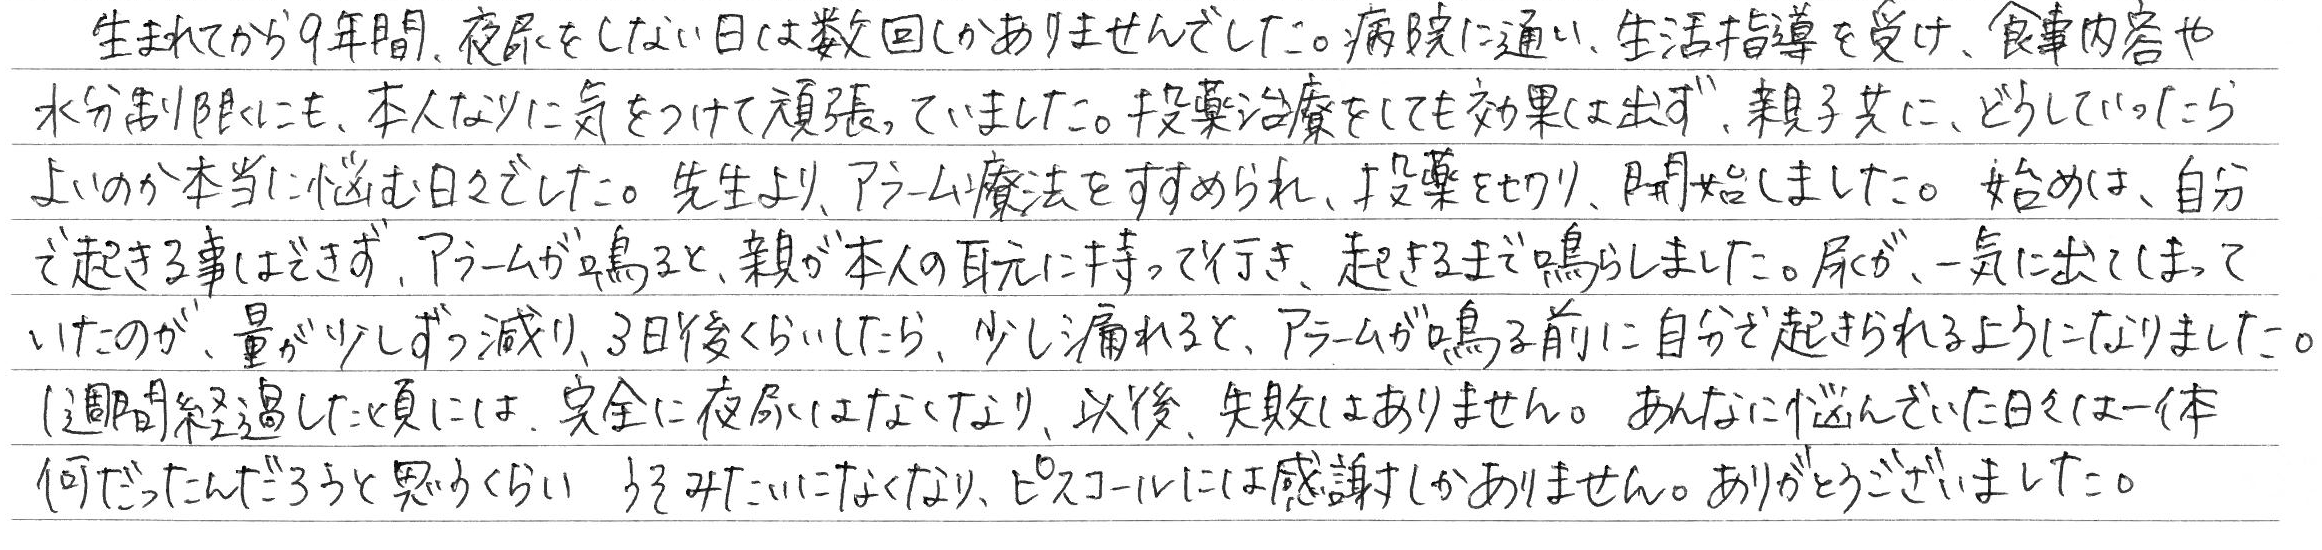 生まれてから9年間、夜尿をしない日は数回しかありませんでした。病院に通い、生活指導を受け、食事内容や
水分制限にも、本人なりに気をつけて頑張っていました。投薬治療をしても効果は出ず、親子共に、どうしていったら
よいのか本当に悩む日々でした。先生より、アラーム療法をすすめられ、投薬を切り、開始しました。始めは、自分
で起きる事はできず、アラームが鳴ると、親が本人の耳元に持って行き、起きるまで鳴らしました。尿が、一気に出てしまって
いたのが、量が少しずつ減り、3日後くらいしたら、少し漏れると、アラームが鳴る前に自分で起きられるようになりました。
1週間経過した頃には、完全に夜尿はなくなり、以後、失敗はありません。あんなに悩んでいた日々は一体
何だったんだろうと思うくらい うそみたいになくなり、ピスコールには感謝しかありません。ありがとうございました。